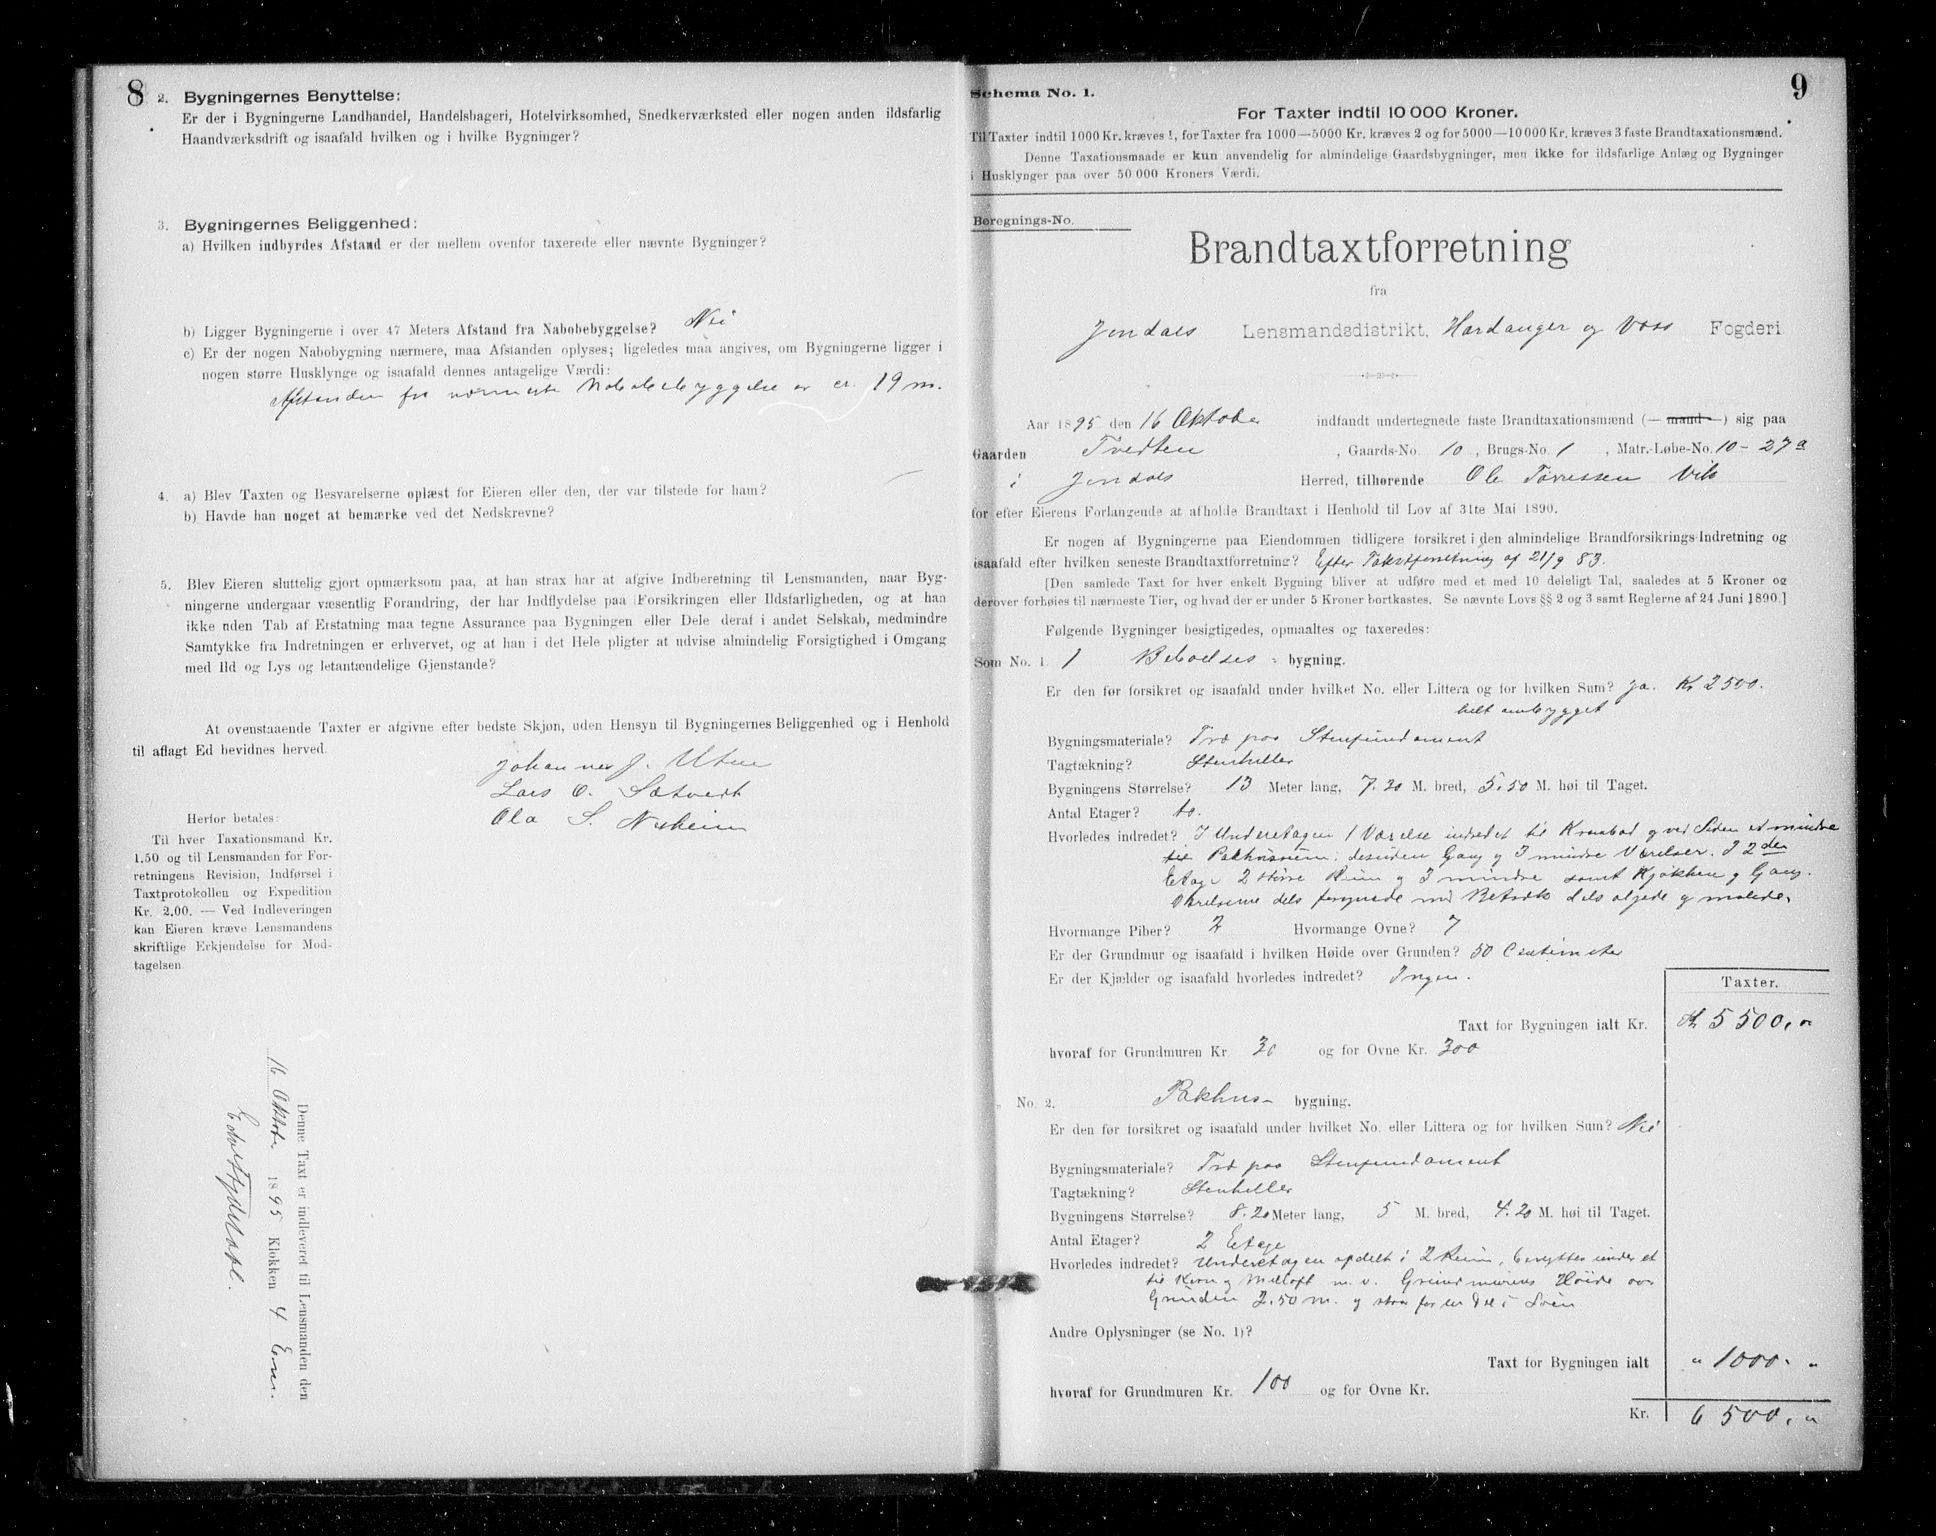 8
2. Bygningernes Benyttelse:
Er der i Bygningerne Landhandel, Handelsbageri, Hotelvirksomhed, Snedkerværksted eller nogen anden ildsfarlig
Haandværksdrift og isaafald hvilken og i hvilke Bygninger?
3. Bygningernes Beliggenhed:
a) Hvilken indbyrdes Afstand er der mellem ovenfor taxerede eller nævnte Bygninger?
b) Ligger Bygningerne i over 47 Meters Afstand fra Nabobebyggelse? Nei
c) Er der nogen Nabobygning nærmere, maa Afstanden oplyses; ligeledes maa angives, om Bygningerne ligger i
nogen større Husklynge og isaafald dennes antagelige Værdi:
Afstanden fra nærmeste Nabobebyggelse er cr. 19 m.
4. a) Blev Taxten og Besvarelserne oplæst for Eieren eller den, der var tilstede for ham?
b) Havde han noget at bemærke ved det Nedskrevne?
5. Blev Eieren sluttelig gjort opmærksom paa, at han strax har at afgive Indberetning til Lensmanden, naar Byg-
ningerne undergaar væsentlig Forandring, der har Indflydelse paa Forsikringen eller Ildsfarligheden, og at han
ikke uden Tab af Erstatning maa tegne Assurance paa Bygningen eller Dele deraf i andet Selskab, medmindre
Samtykke fra Indretningen er erhvervet, og at han i det Hele pligter at udvise almindelig Forsigtighed i Omgang
med Ild og Lys og letantændelige Gjenstande?
At ovenstaaende Taxter er afgivne efter bedste Skjøn, uden Hensyn til Bygningernes Beliggenhed og i Henhold
til aflagt Ed bevidnes herved.
Johannes J. Utne
Lars O. Sætvedt
Ola S. Næsheim
Herfor betales:
Til hver Taxationsmand Kr.
1.50 og til Lensmanden for For-
retningens Revision, Indførsel i
Taxtprotokollen og Expedition
Kr. 2.00. — Ved Indleveringen
kan Eieren kræve Lensmandens
skriftlige Erkjendelse for Mod-
tagelsen.
Denne Taxt er indleveret til Lensmanden den
16 Oktober 1895 Klokken 4 Em.
9
Schema No. 1.
For Taxter indtil 10 000 Kroner.
Til Taxter indtil 1000 Kr. kræves 1, for Taxter fra 1000—5000 Kr. kræves 2 og for 5000—10000 Kr. kræves 3 faste Brandtaxationsmænd.
Denne Taxationsmaade er kun anvendelig for almindelige Gaardsbygninger, men ikke for ildsfarlige Anlæg og Bygninger
i Husklynger paa over 50 000 Kroners Værdi.
Beregnings-No.
Brandtaxtforretning
fra
Jondals Lensmandsdistrikt, Hardanger og Voss Fogderi
Aar 1895 den 16 Oktober indfandt undertegnede faste Brandtaxationsmænd (—mand—) sig paa
Gaarden Tvedten, Gaards-No. 10, Brugs-No. 1, Matr.-Løbe-No. 10-27a
i Jondals Herred, tilhørende Ole Torressen Vik
for efter Eierens Forlangende at afholde Brandtaxt i Henhold til Lov af 31te Mai 1890.
Er nogen af Bygningerne paa Eiendommen tidligere forsikret i den almindelige Brandforsikrings-Indretning og
isaafald efter hvilken seneste Brandtaxtforretning? Efter Takstforretning af 21/9 83.
[Den samlede Taxt for hver enkelt Bygning bliver at udføre med et med 10 deleligt Tal, saaledes at 5 Kroner og
derover forhøies til nærmeste Tier, og hvad der er under 5 Kroner bortkastes. Se nævnte Lovs §§ 2 og 3 samt Reglerne af 24 Juni 1890.]
Følgende Bygninger besigtigedes, opmaaltes og taxeredes:
Som No. 1. 1 Beboelses-bygning.
Er den før forsikret og isaafald under hvilket No. eller Littera og for hvilken Sum? Ja. Kr 2500.
helt ombygget
Bygningsmateriale? Træ paa Stenfundament
Tagtækning? Stenheller
Bygningens Størrelse? 13 Meter lang, 7.20 M. bred, 5.50 M. høi til Taget.
Antal Etager? to.
Hvorledes indredet? I Underetagen 1 Værelse indredet til Krambod og ved Siden et mindre
til Pakhusrum; desuden Gang og 3 mindre Værelser. I 2den
Etage 2 større Rum og 3 mindre samt Kjøkken og Gang.
Værelserne dels forsynede med Betræk dels oljede og malede.
Hvormange Piber? 2 Hvormange Ovne? 7
Er der Grundmur og isaafald i hvilken Høide over Grunden? 50 Centimeter
Er der Kjælder og isaafald hvorledes indredet? Ingen.
Taxter.
Taxt for Bygningen ialt Kr. Kr 5500,"
hvoraf for Grundmuren Kr. 30 og for Ovne Kr. 300
" No. 2. Pakhus- bygning.
Er den før forsikret og isaafald under hvilket No. eller Littera og for hvilken Sum? Nei
Bygningsmateriale? Træ paa Stenfundament
Tagtækning? Stenheller
Bygningens Størrelse? 8.20 Meter lang, 5 M. bred, 4.20 M. høi til Taget.
Antal Etager? 2 Etage
Hvorledes indredet? Underetagen opdelt i 2 Rum, benyttes under et
til Korn og Melloft m.v. Grundmurens Høide over
Grunden 2.50 m. og staar for en Del i Søen
Andre Oplysninger (se No. 1)?
Taxt for Bygningen ialt " 1000. "
hvoraf for Grundmuren Kr. 100 og for Ovne Kr.
Kr. 6500, "